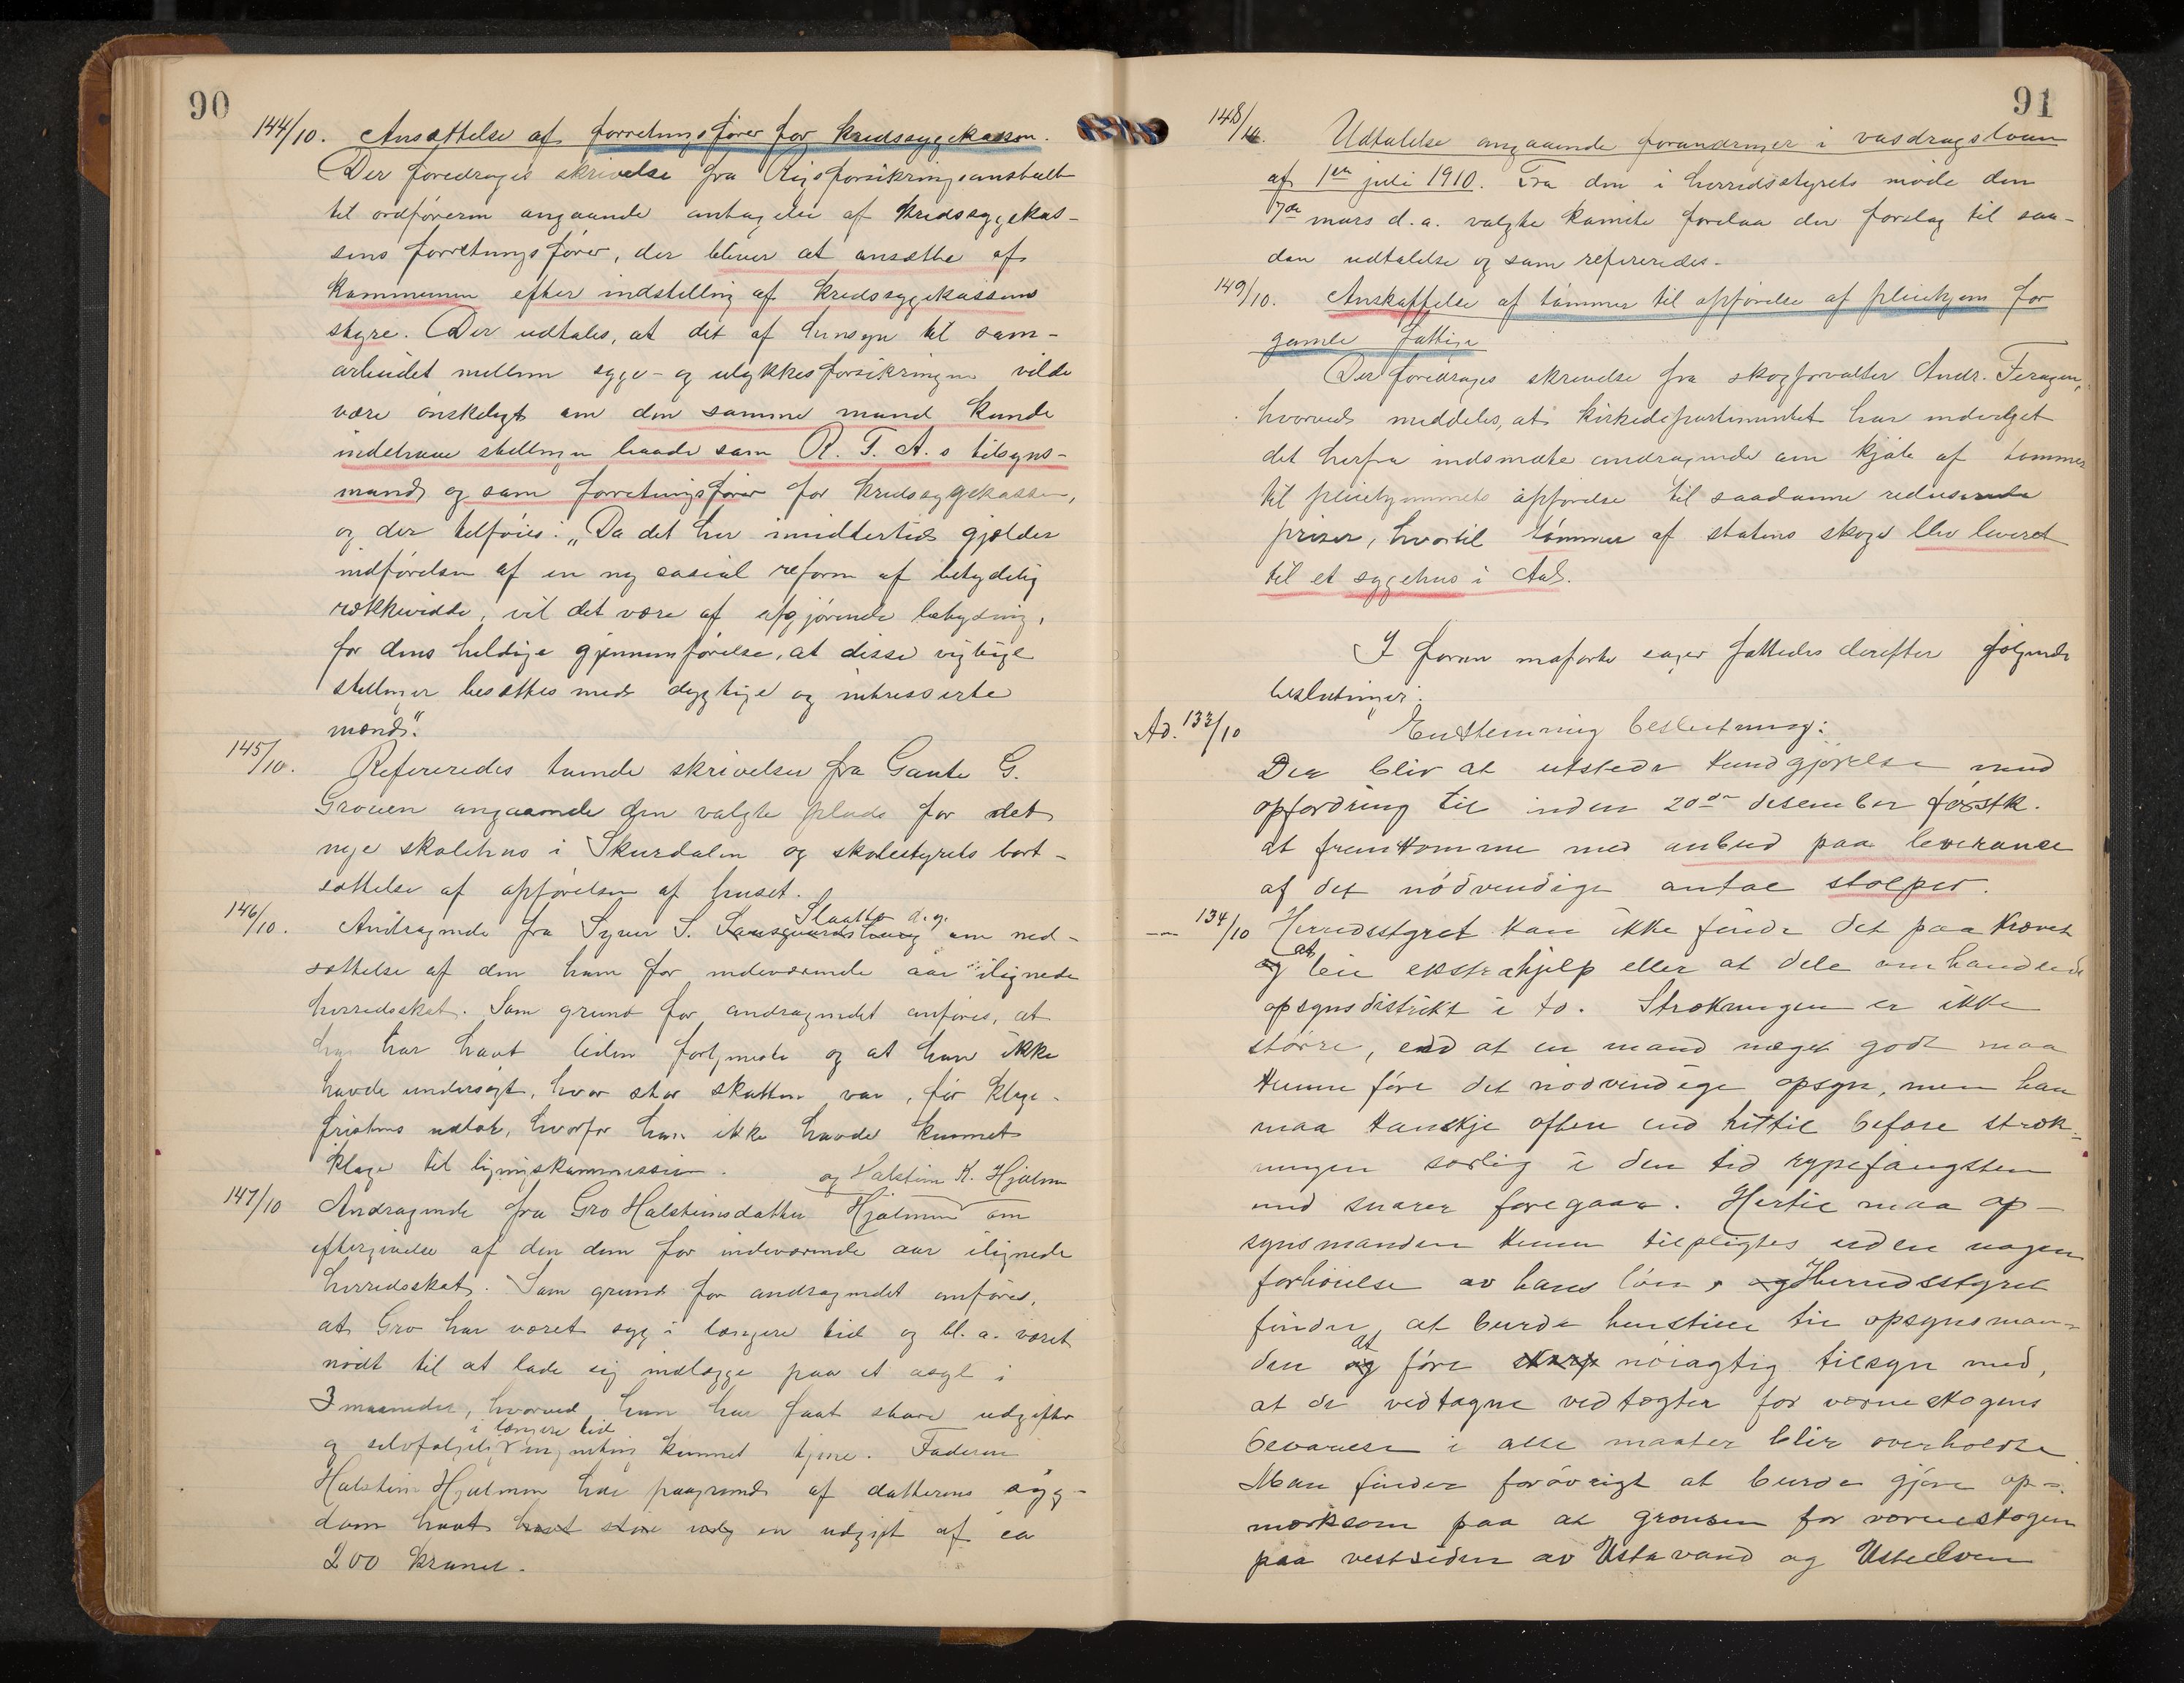 90
144/10. Ansættelse af forretningsfører for kredssygekassen.
Der foredrages skrivelse fra Rigsforsikringsanstalt
til ordføreren angaaende antagelse af kredssygekas-
sens forretningsfører, der bliver at ansætte af
kommunen efter indstilling af kredssygekassens
styre. Der udtales, at det af hensyn til sam-
arbeidet mellem syge- og ulykkesforsikringen vilde
være ønskeligt om den samme mand kunde
indehave stillingen baade som R. F. A.s tilsyns-
mand og som forretningsfører for kredssygekassen,
og der tilføies: „Da det her imidlertid gjælder
indførelsen af en ny sosial reform af betydelig
rækkevidde, vil det være af afgjørende betydning,
for dens heldige gjennemførelse, at disse vigtige
stillinger besættes med dygtige og interesserte
mænd."
145/10. Refereredes tvende skrivelser fra Gaute G.
Grouen angaaende den valgte plads for det
nye skolehus i Skurdalen og skolestyrets bort-
sættelse af opførelsen af huset.
Slaatto d.y.
146/10. Andragende fra Syver S. om ned-
sættelse af den ham for indeværende aar ilignede
herredsskat. Som grund for andragendet anføres, at
han har havt liden fortjeneste og at han ikke
havde undersøgt, hvor stor skatten var, før klage-
fristens udløb, hvorfor han ikke havde kunnet
klage til ligningskommissionen.
og Halstein K. Hjalmen
147/10 Andragende fra Gro Halsteinsdatter Hjalmen om
eftergivelse af den dem for indeværende aar ilignede
herredsskat. Som grund for andragendet anføres,
at Gro har været syg i længere tid og bl. a. været
nødt til at lade sig indlægge paa et asyl i
3 maaneder, hvorved hun har faat store udgifter
i længere tid
og selvfølgelig ingenting kunnet tjene. Faderen
Halstein Hjalmen har paagrund af datterens syg-
dom havt havt store udg en udgift af ca
200 kroner.
91
148/10. Udtalelse angaaende forandringer i vasdragsloven
af 1ste juli 1910. Fra den i herredsstyrets møde den
7de mars d.a. valgte komite forelaa der forslag til saa-
dan udtalelse og som refereredes.
149/10. Anskaffelse af tømmer til opførelse af pleiehjem for
gamle fattige
Der foredrages skrivelse fra skogforvalter Andr. Feragen,
hvorved meddeles, at kirkedepartementet har indvilget
det herfra indsendte andragende om kjøb af tømmer
til pleiehjemmets opførelse til saadanne reduserede
priser, hvortil tømmer af statens skoge blev leveret
til et sygehus i Aal.
I foran anførte sager fattedes derefter følgende
beslutninger:
Ad. 133/10 Enstemmig beslutning:
Der bliv at utstede kundgjørelse med
opfordring til inden 20de desember førstk.
at fremkomme med anbud paa leverance
af det nødvendige antal stolper.
—„— 134/10 Herredsstyret kan ikke finde det paakrævet
at
og leie ekstrahjelp eller at dele omhandlede
opsynsdistrikt i to. Strækningen er ikke
større, end at en mand meget godt maa
kunne føre det nødvendige opsyn, men han
maa kanskje oftere end hittil befare stræk-
ningen særlig i den tid rypefangsten
med snarer foregaar. Hertil maa op-
synsmanden kunne tilpligtes uden nogen
forhøielse av hans løn, og Herredsstyret
finder at burde henstille til opsynsman-
at
den og føre skarp nøiagtig tilsyn med,
at de vedtagne vedtægter for verneskogens
bevarelse i alle maater blir overholdte
Man finder forøvrigt at burde gjøre op-
mærksom paa at grænsen for verneskogen
paa vestsiden av Ustavand og Usteelven